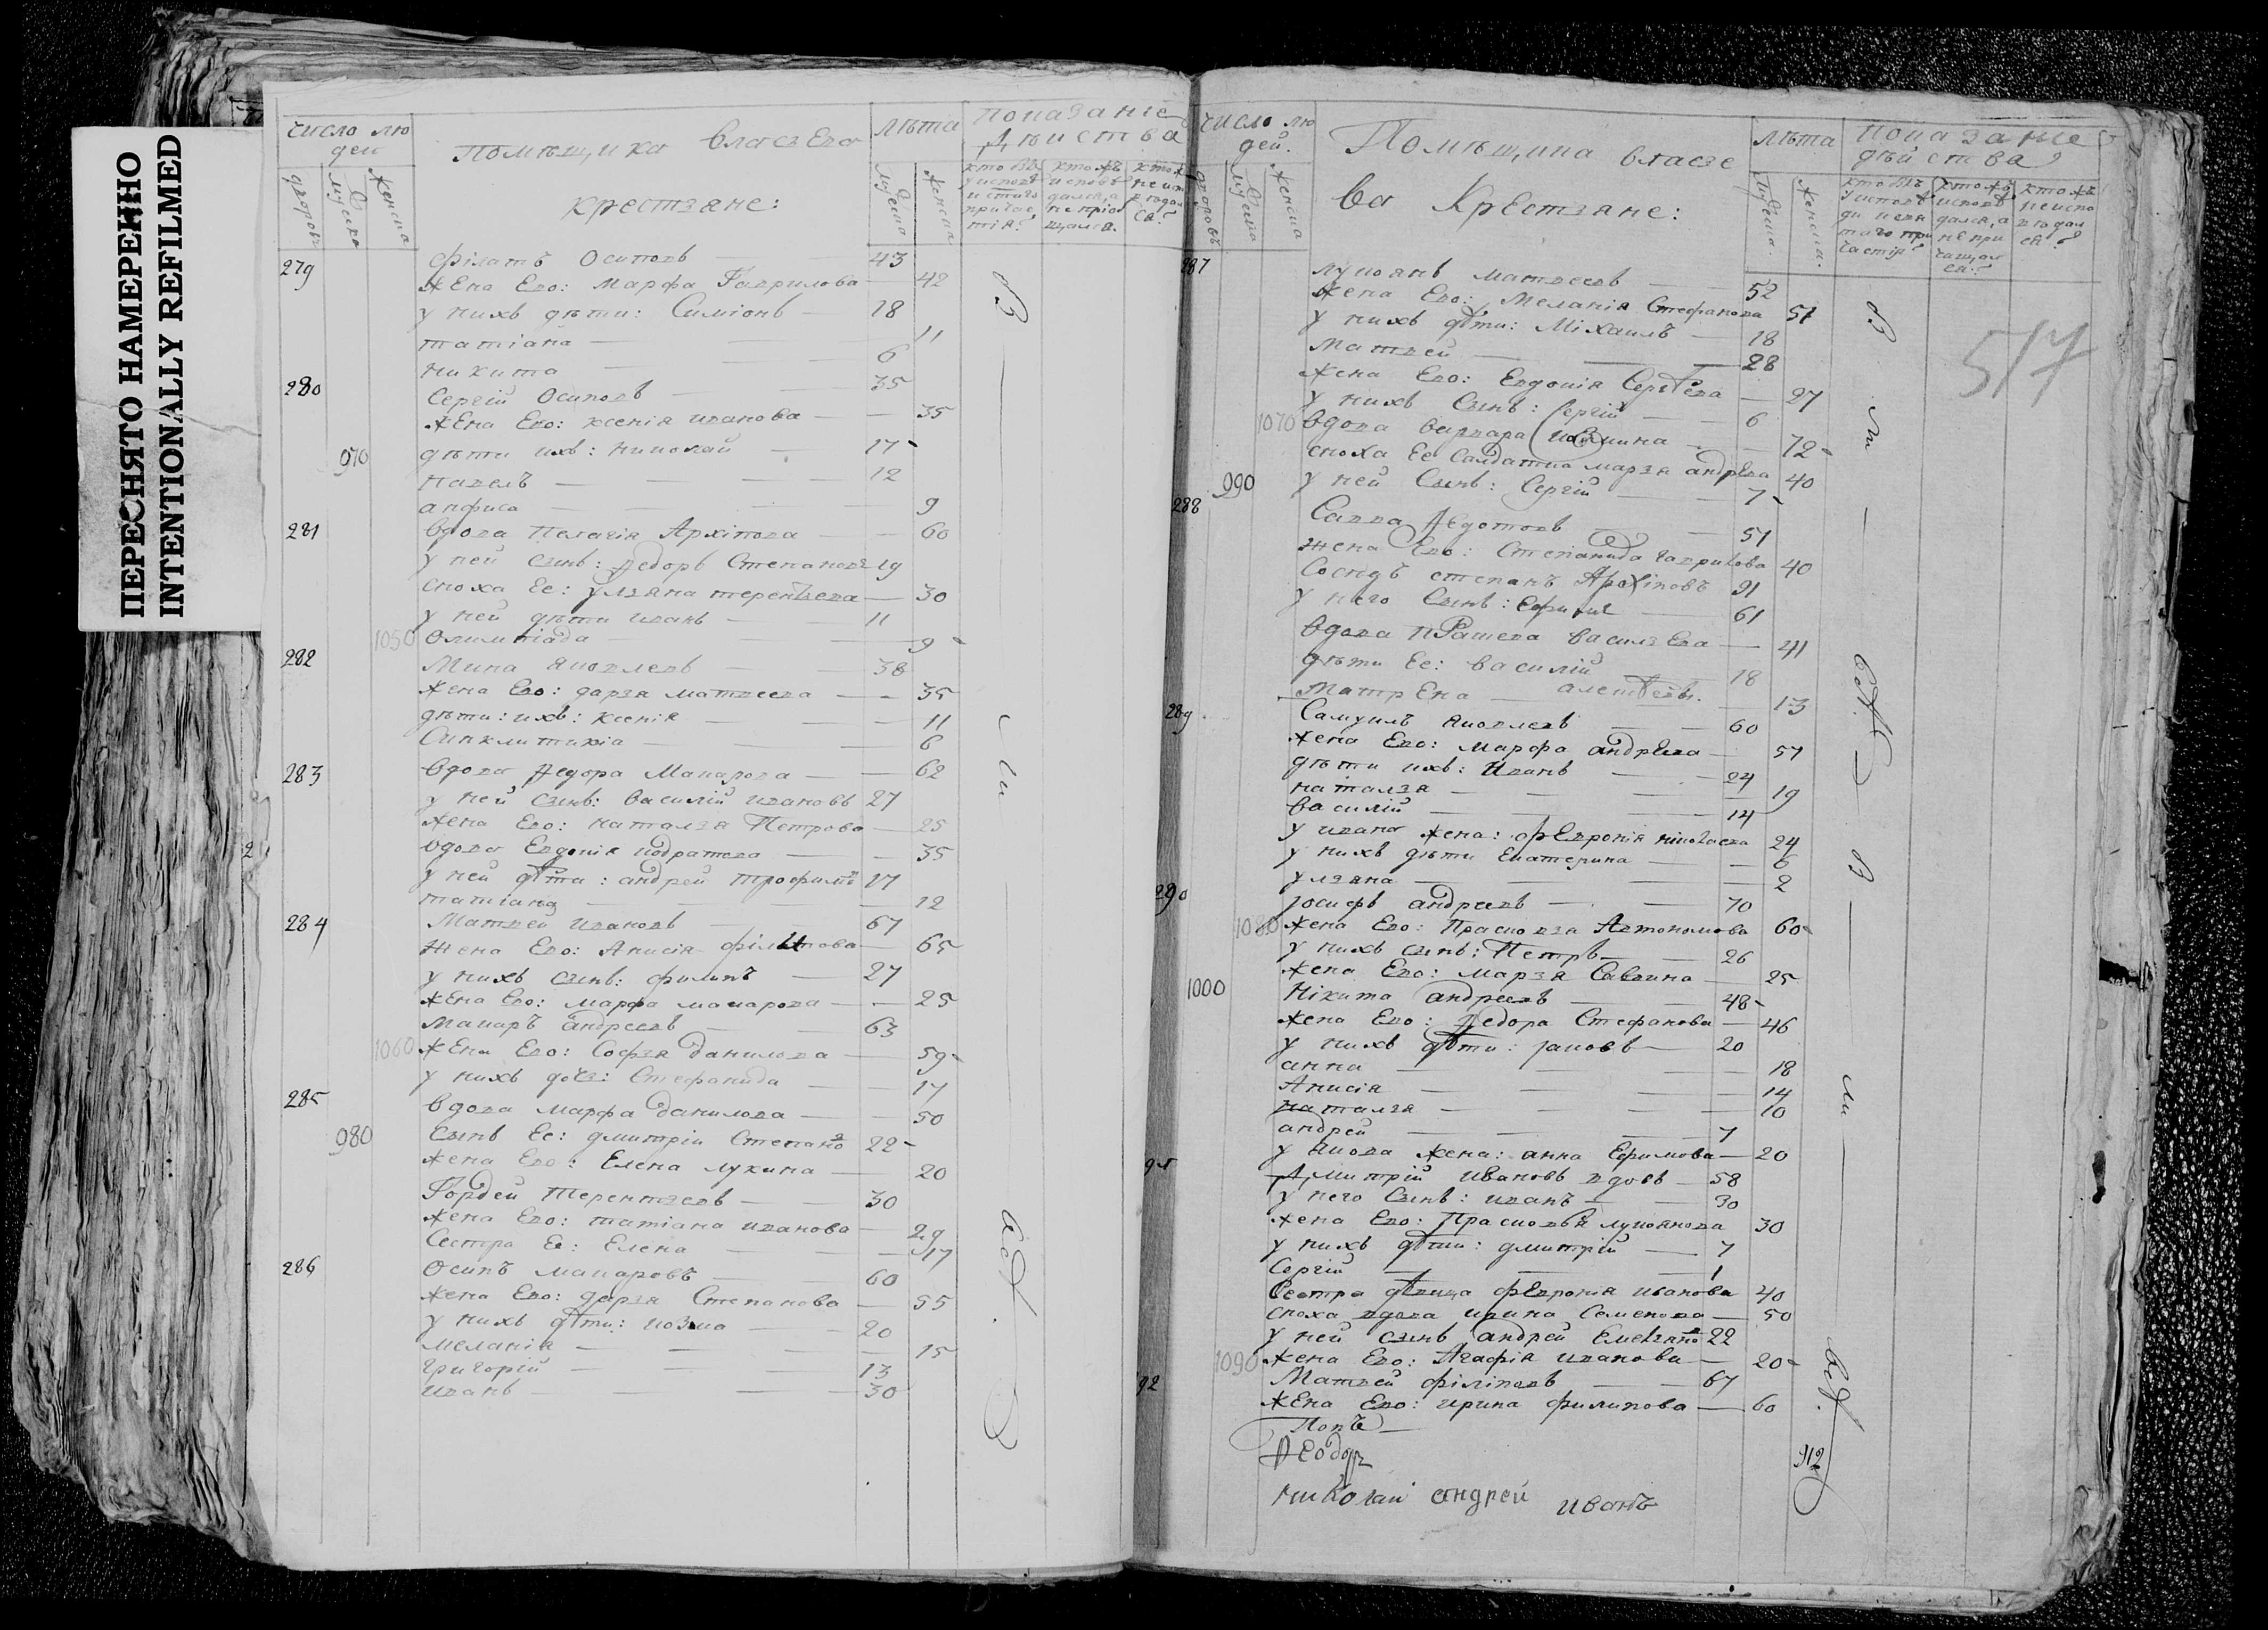 ПЕРЕСНЯТО НАМЕРЕННО
INTENTIONALLY REFILMED
число лю
дей
дворовъ
мужеска
женска
помѣщика власъева
крестьяне:
лѣта
мужеска
женска
показаніе
дѣиства
кто бъ
у исповѣ
и стаго
причас
тія?
кто жъ
исповѣ
дался, а
не прiоб
щался.
279
філатъ осиповъ — 43
жена Ево: марфа Гаврилова — 42
у нихъ дѣти: Симіонъ — 18
татіана — 11
никита — 6
280
Сергій осиповъ — 35
жена Ево: ксенія иванова — 35
970
дѣти ихъ: николай — 17
павелъ — 12
анфиса — 9
281
вдова Пелагія Архіпова — 60
у ней сынъ: Федоръ Степановъ 19
сноха Ее: ульяна терентьева — 30
у ней дѣти иванъ — 11
1050
олимпіада — 9
282
Мина яковлевъ — 38
жена Ево: дарья матвеева — 35
дѣти: ихъ: ксенія — 11
Синклитикіа — 6
283
вдова Федора Макарова — 62
у ней сынъ: василій ивановъ 27
жена Ево: наталья Петрова — 25
вдова Евдокия кодратева — 35
у ней дѣти: андрей трофимо 17
татіана — 12
284
Матвеи ивановъ — 67
жена Ево: Анисія філипова — 65
у нихъ сынъ: филипъ — 27
жена Ево: марфа макарова — 25
макаръ андреевъ — 63
1060
жена Ево: Софья данилова — 59
у нихъ дочь: Стефанида — 17
285
вдова марфа данилова — 50
980
сынъ Ее: дмитріи Степано 22
жена Ево: Елена лукина — 20
Гордеи терентьевъ — 30
жена Ево: татіана иванова — 29
Сестра Ее: Елена — 17
286
осипъ макаровъ — 60
жена Ево: дарья Степанова — 55
у нихъ дѣти: козма — 20
меланія — 15
григорій — 13
иванъ — 30
число лю
дей.
дворовъ
мужеска
женска
Помѣщика власье
ва Крестьяне:
лѣта
мужеска.
женска.
показание
дѣйства
кто жъ
исповѣ
дался, а
не при
чащал
ся?
кто жъ
неиспо
ведал
ся?
517
287
лукоянъ матвеевъ — 52
жена Ево: Меланія Стефанова 51
у нихъ дѣти: Міхаилъ — 18
Матвеи — 28
жена Ево: Евдокія Сергѣева — 27
у нихъ Сынъ: Сергій — 6
1070
вдова варвара козмина — 72
сноха Ее Салдатка марья андреева 40
990
у ней Сынъ: Сергій — 7
288
Савва Федотовъ — 51
жена Ево: Степанида гаврилова 40
Сосѣдъ степанъ Архіповъ 91
у него Сынъ: Ефимъ — 61
вдова васильева — 41
дѣти Ее: василій — 18
Матрена — 13
289
Самуилъ яковлевъ — 60
жена Ево: марфа андреева — 57
дѣти ихъ: Иванъ — 24
наталья — 19
василій — 14
у ивана жена: февронія николаева 24
у нихъ дѣти Екатерина — 6
ульяна — 2
290
Іосифъ андреевъ — 70
1080
жена Ево: Прасковья Автономова 60
у нихъ сынъ: Петръ — 26
жена Ево: марья Саввина — 25
1000
Нікита андреевъ — 48
жена Ево: Федора Стефанова — 46
у нихъ дѣти: Іаковъ — 20
анна — 18
Анисія — 14
наталья — 10
андрей — 7
у якова жена: анна Ефимова — 20
91
Дмитрій Ивановъ вдовъ — 58
у него Сынъ: иванъ — 30
жена Ево: Прасковья лукоянова 30
у нихъ дѣти: дмитрій — 7
Сергій — 1
Сестра девица феврония иванова 40
сноха вдова ирина Семенова — 50
у ней сынъ андрей Емельяно 22
1090
жена Ево: Агафія иванова — 20
92
Матвей філіповъ — 67
жена Ево: ирина филипова — 60
Попъ
Феодоръ
николаи андреи иванъ